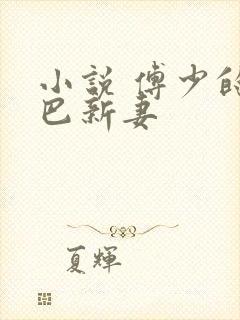 小説 傅少的
巴新妻
夏輝